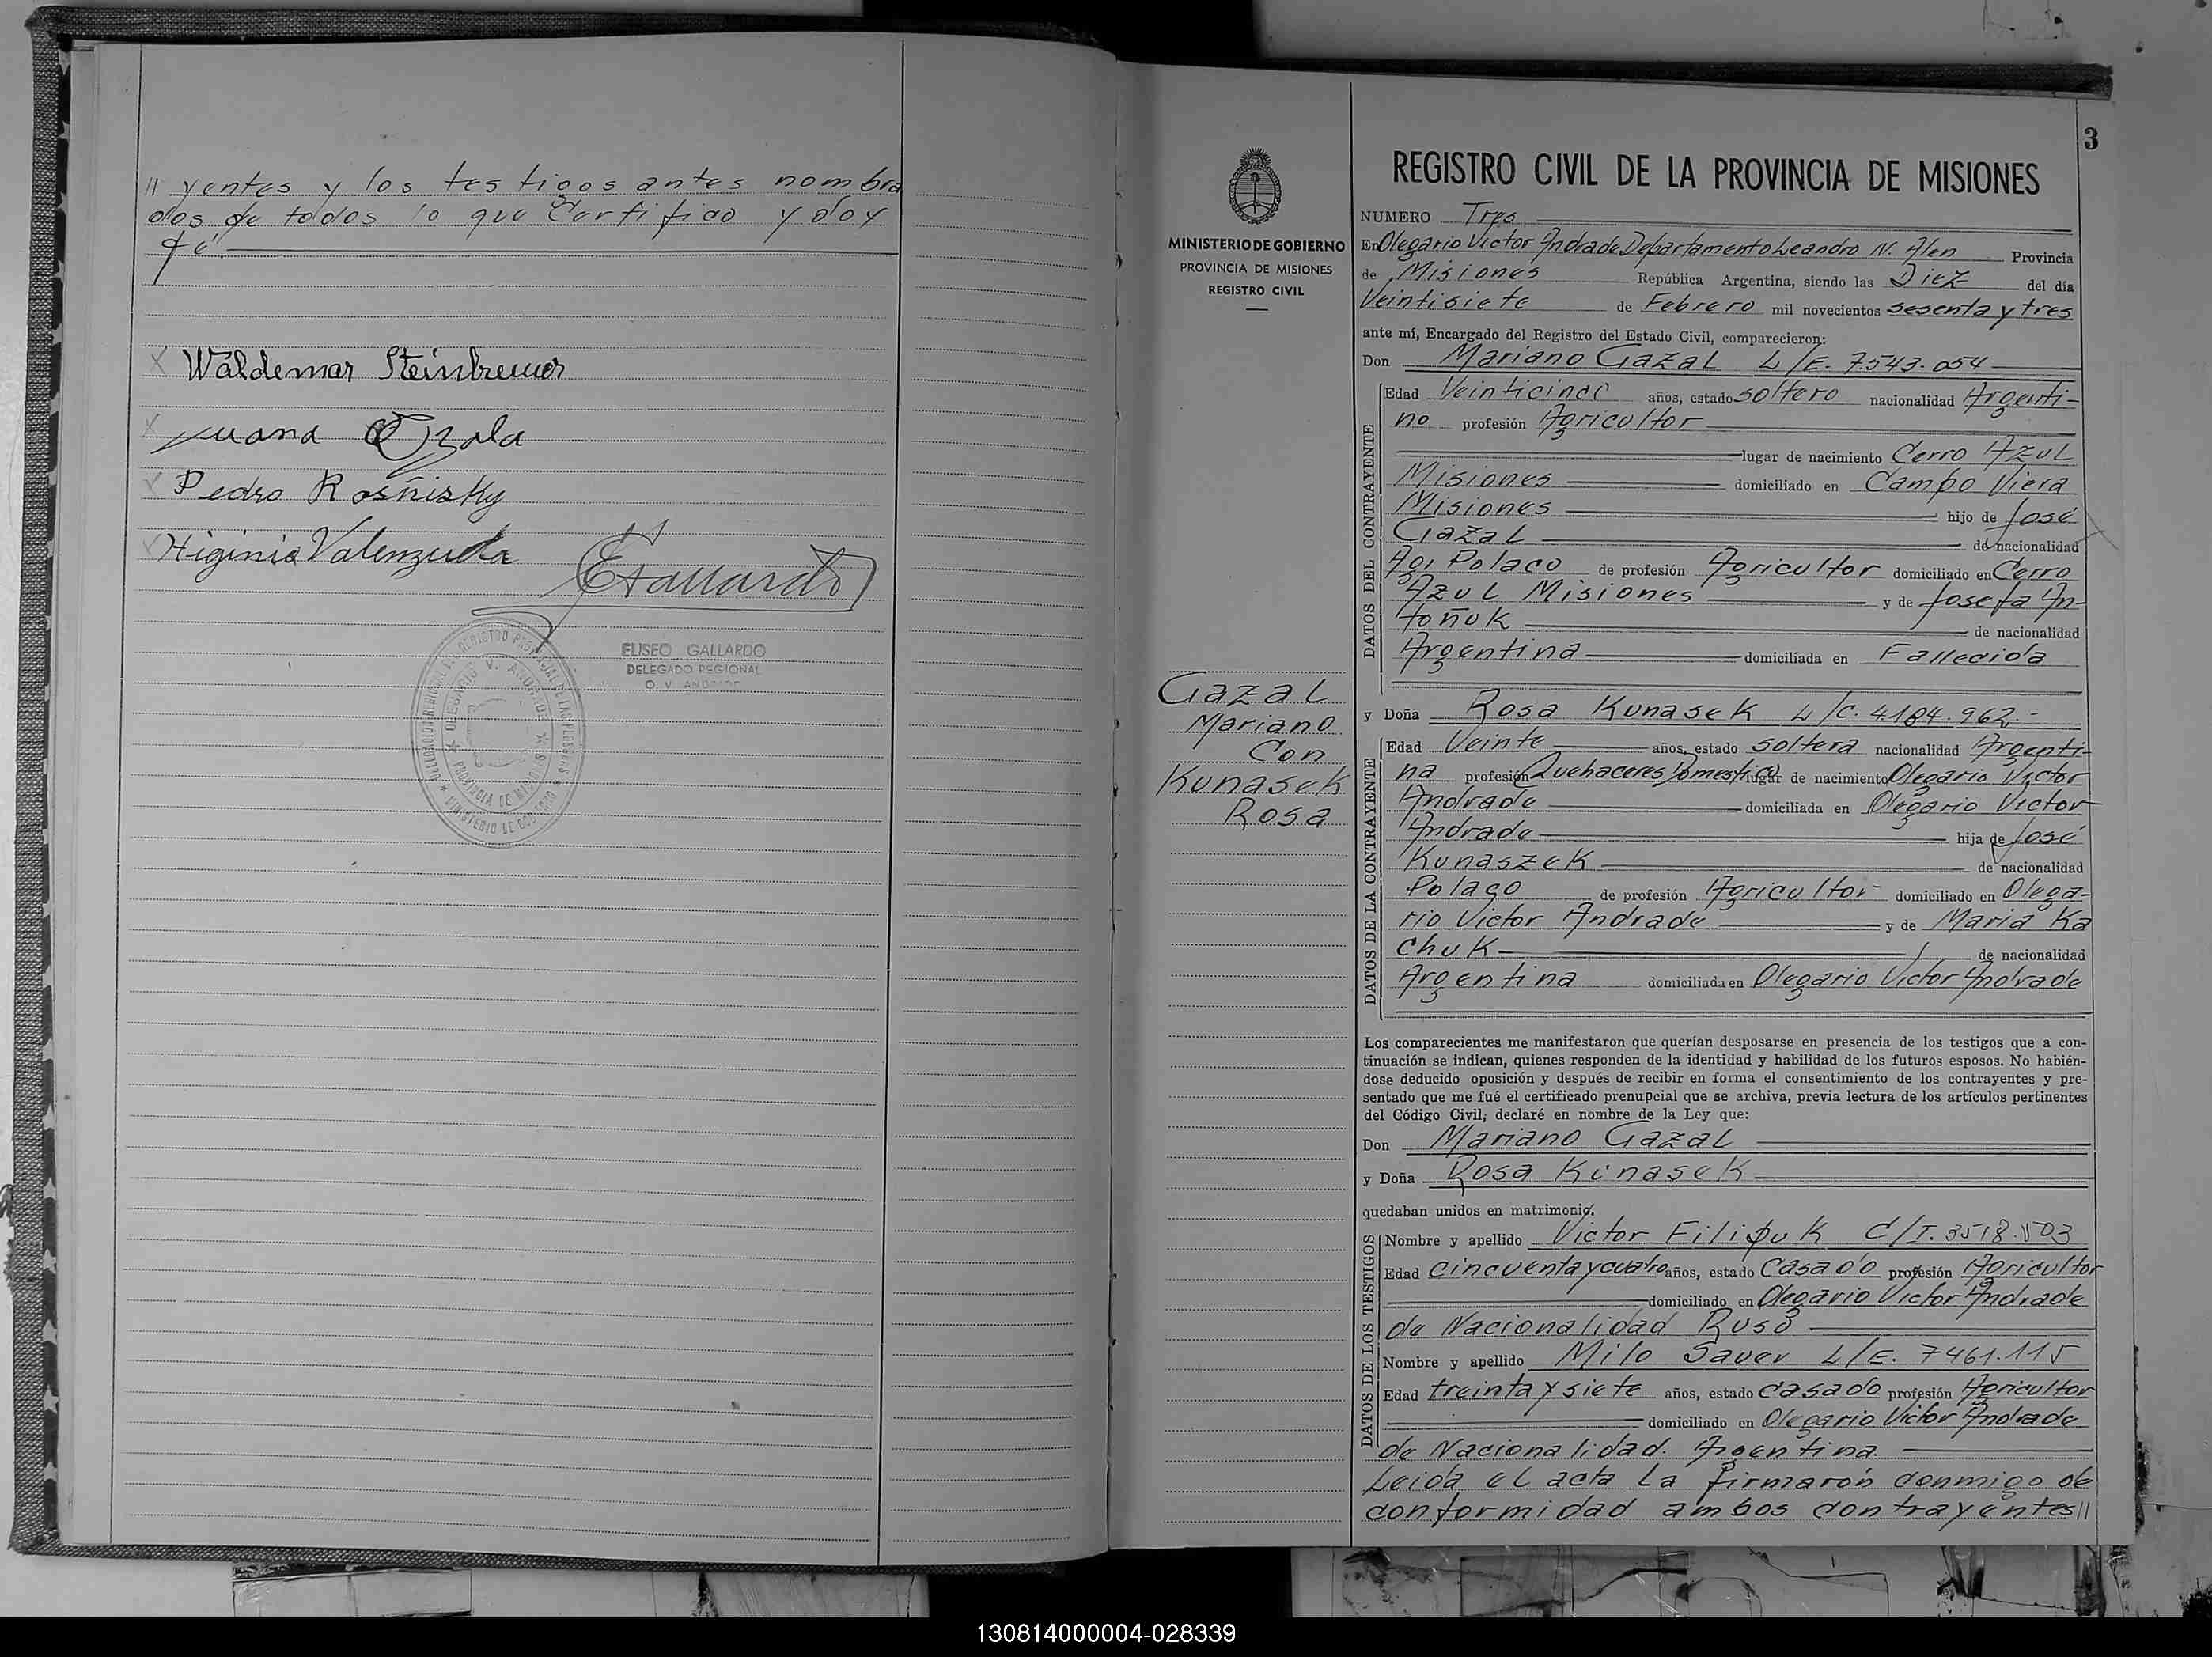 // yentes y los testigos antes nombra
dos de todos lo que Certifico y doy
fé
Waldemar Steinbrenner
Juana Ozola
Pedro Rosñisky
Higinio Valenzuela
EGallardo
ELISEO GALLARDO
DELEGADO REGIONAL
O. V. ANDRADE
OLEGARIO V. ANDRADE
PROVINCIA DE MISIONES
MINISTERIO DE GOBIERNO
PROVINCIA DE MISIONES
REGISTRO CIVIL
Gazal
Mariano
Con
Kunasek
Rosa
3
REGISTRO CIVIL DE LA PROVINCIA DE MISIONES
NUMERO Tres
En Olegario Victor Andrade Departamento Leandro N. Alen Provincia
de Misiones República Argentina, siendo las Diez del día
Veintisiete de Febrero mil novecientos sesenta y tres
ante mí, Encargado del Registro del Estado Civil, comparecieron:
Don Mariano Gazal L/E. 7.543.054
DATOS DEL CONTRAYENTE
Edad Veinticinco años, estado soltero nacionalidad Argenti-
no profesión Agricultor
lugar de nacimiento Cerro Azul
Misiones domiciliado en Campo Viera
Misiones hijo de José
Gazal de nacionalidad
Polaco de profesión Agricultor domiciliado en Cerro
Azul Misiones y de Josefa An-
toñuk de nacionalidad
Argentina domiciliada en Fallecida
y Doña Rosa Kunasek L/C. 4184.962.-
DATOS DE LA CONTRAYENTE
Edad Veinte años, estado soltera nacionalidad Argenti-
na profesión Quehaceres Domestico lugar de nacimiento Olegario Victor
Andrade domiciliada en Olegario Victor
Andrade hija de José
Kunaszek de nacionalidad
Polaco de profesión Agricultor domiciliado en Olega-
rio Victor Andrade y de Maria Ka
chuk de nacionalidad
Argentina domiciliada en Olegario Victor Andrade
Los comparecientes me manifestaron que querían desposarse en presencia de los testigos que a con-
tinuación se indican, quienes responden de la identidad y habilidad de los futuros esposos. No habién-
dose deducido oposición y después de recibir en forma el consentimiento de los contrayentes y pre-
sentado que me fué el certificado prenupcial que se archiva, previa lectura de los artículos pertinentes
del Código Civil; declaré en nombre de la Ley que:
Don Mariano Gazal
y Doña Rosa Kinasek
quedaban unidos en matrimonio.
DATOS DE LOS TESTIGOS
Nombre y apellido Victor Filipuk C/I. 3518.503
Edad cincuenta y cuatro años, estado Casado profesión Agricultor
domiciliado en Olegario Victor Andrade
de Nacionalidad Ruso
Nombre y apellido Milo Sauer L/E. 7461.115
Edad treinta y siete años, estado casado profesión Agricultor
domiciliado en Olegario Victor Andrade
de Nacionalidad. Argentina.
Leida el acta La firmaron conmigo de
conformidad ambos contrayentes //
130814000004-028339